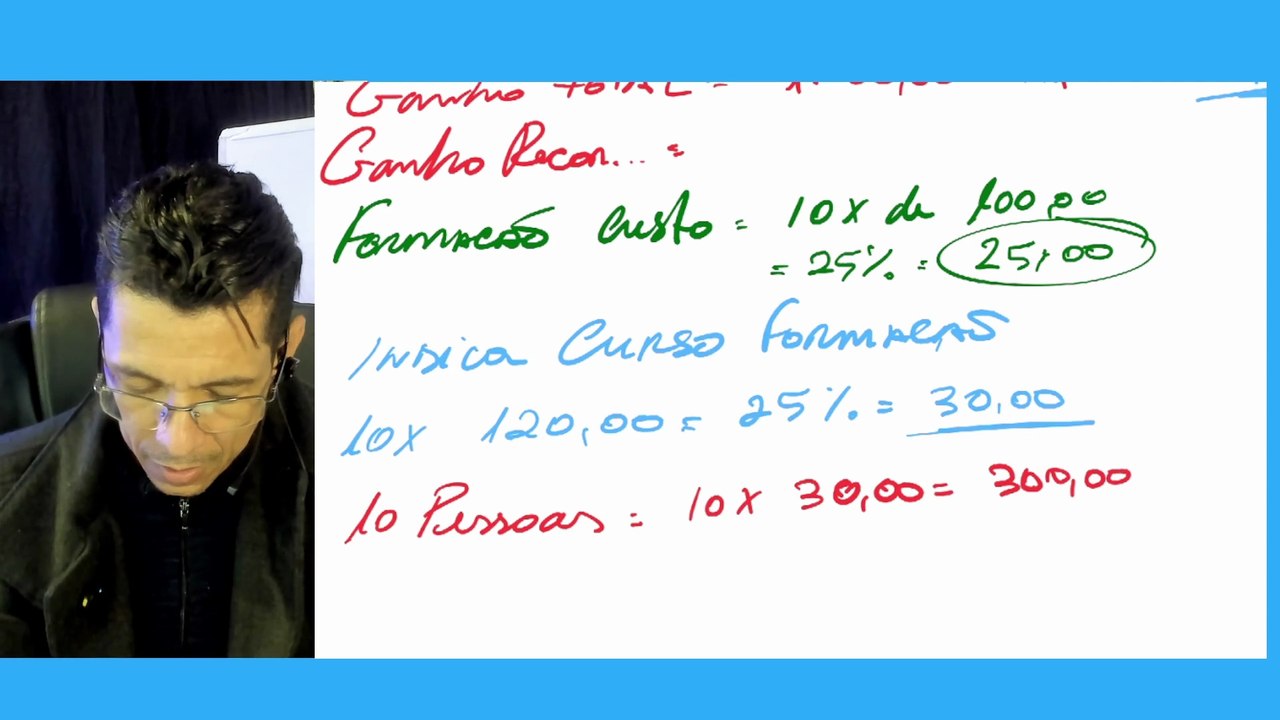 Ganho Total =
Ganho Recor... =
Formação Custo = 10x de 100,00
= 25% = 25,00
Indica Curso Formação
10x 120,00 = 25% = 30,00
10 Pessoas = 10x 30,00 = 300,00